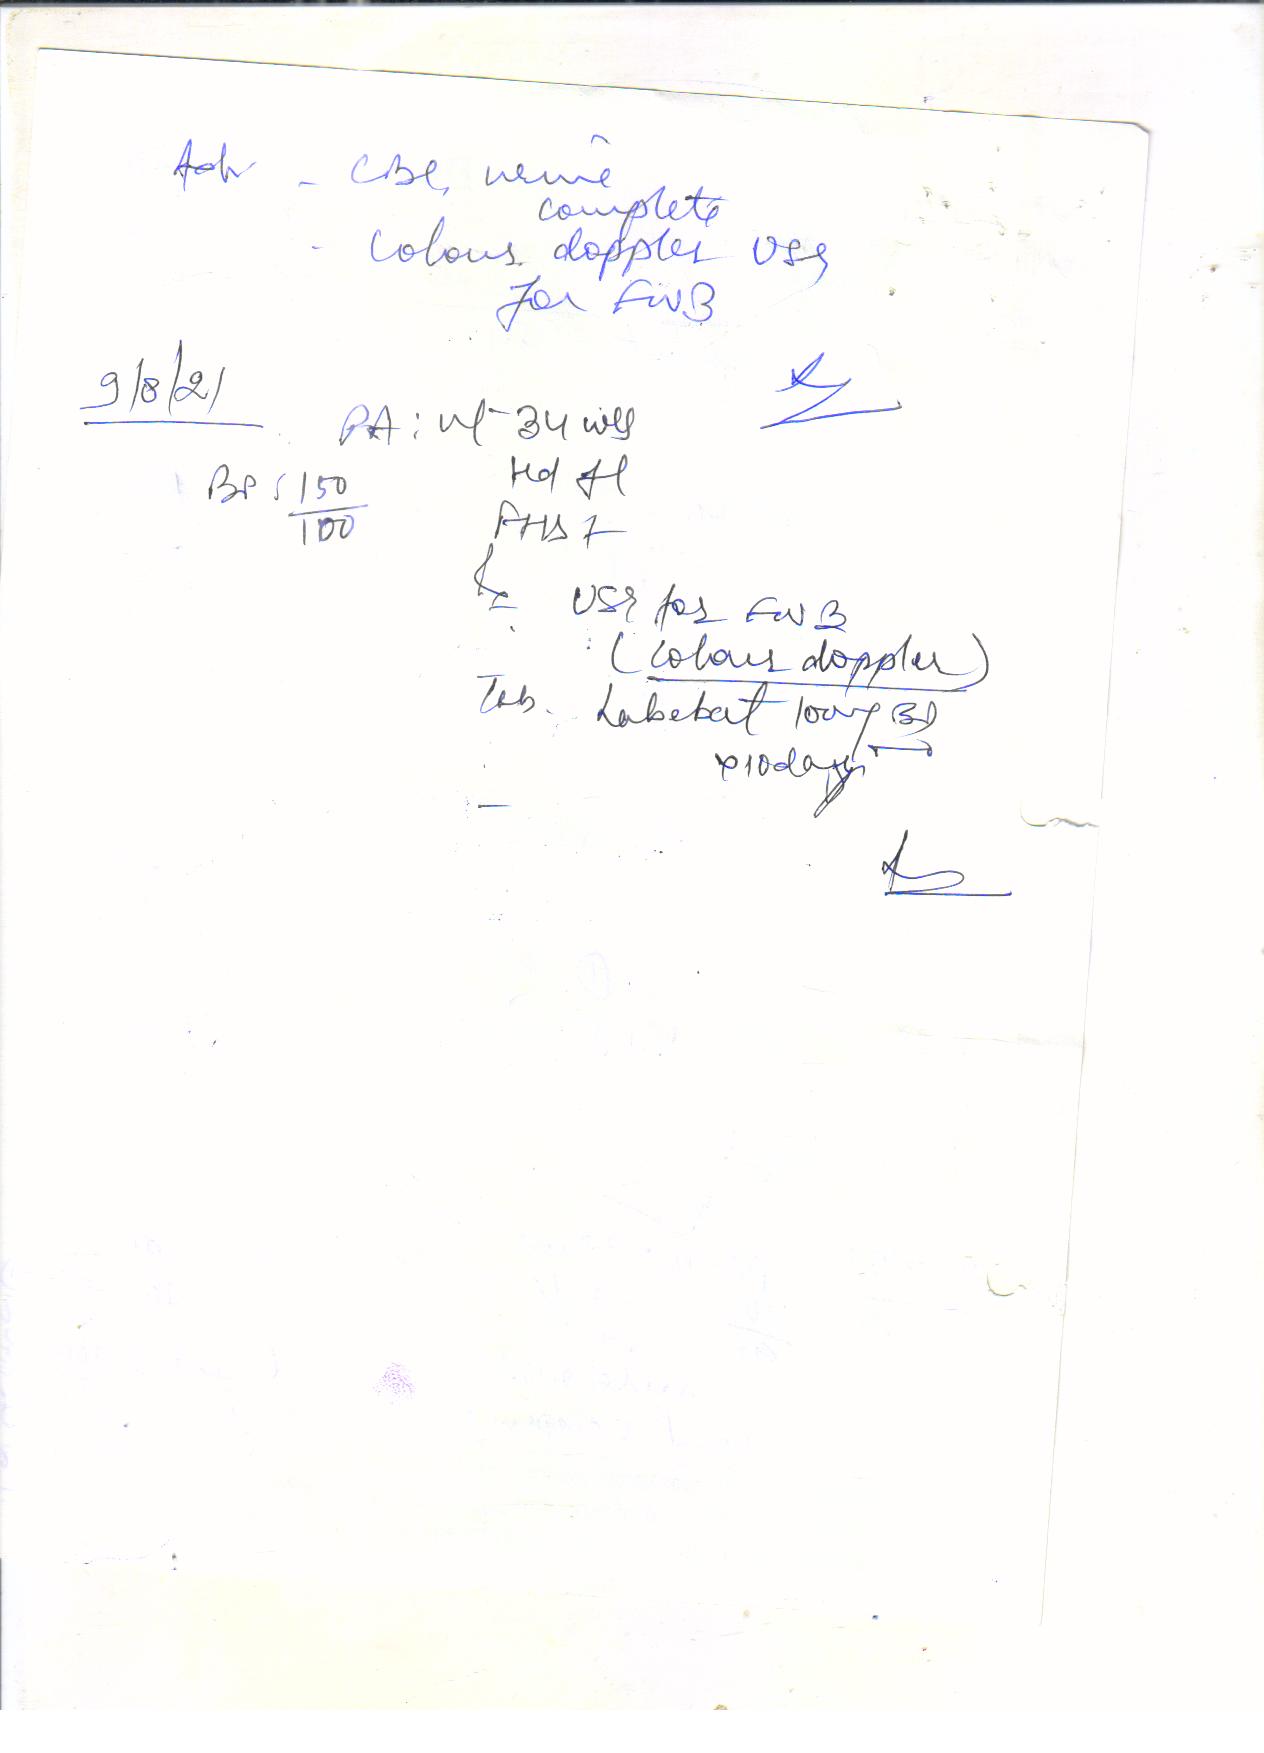 Adv - CBC, urine
complete
- Colour doppler USG
for FWB
9/8/21
PA: ut - 34 wks
BP: 150
100
FHS
USG for FWB
(colour doppler)
Tab. Labebet 100mg BD
x 10 days